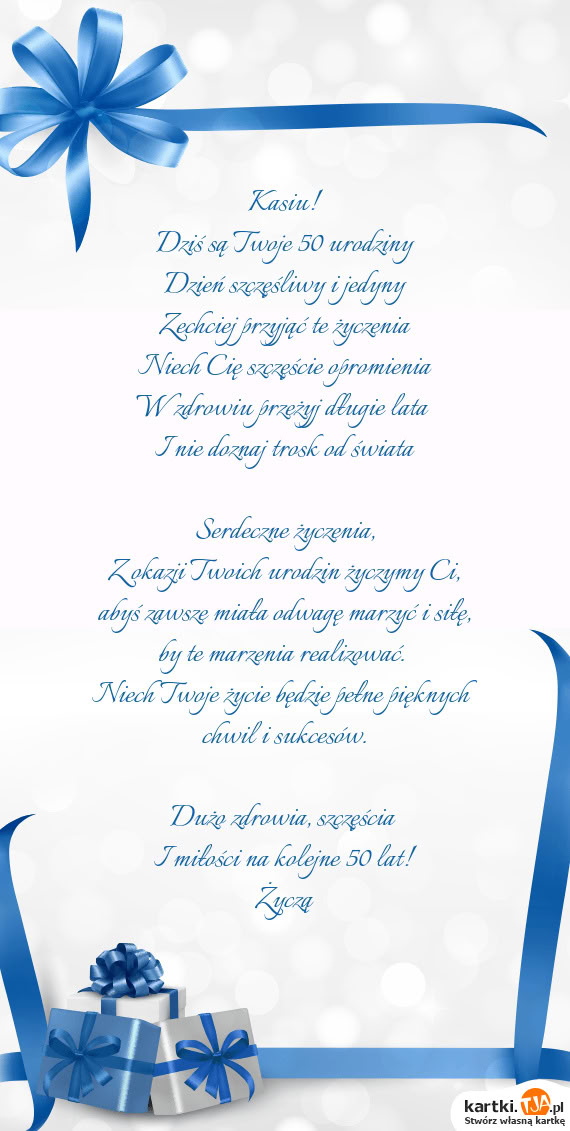 Kasiu!
Dziś są Twoje 50 urodziny
Dzień szczęśliwy i jedyny
Zechciej przyjąć te życzenia
Niech Cię szczęście opromienia
W zdrowiu przeżyj długie lata
I nie doznaj trosk od świata
Serdeczne życzenia,
Z okazji Twoich urodzin życzymy Ci,
abyś zawsze miała odwagę marzyć i siłę,
by te marzenia realizować.
Niech Twoje życie będzie pełne pięknych
chwil i sukcesów.
Dużo zdrowia, szczęścia
I miłości na kolejne 50 lat!
Życzą
kartki.TJA.pl
Stwórz własną kartkę